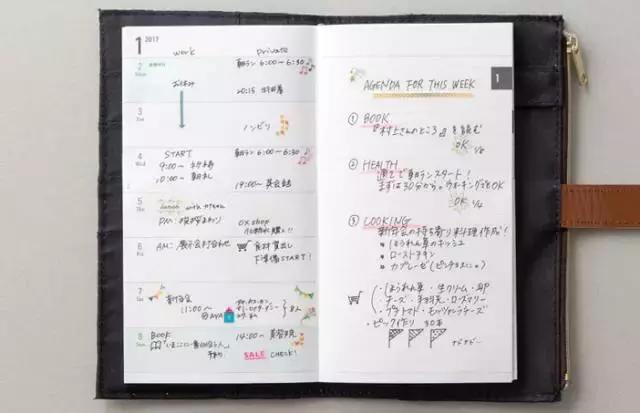 1 2017
work private
2 Mon 朝ラン 6:00〜6:30
20:15
3 Tue ノンビリ
4 Wed START 朝ラン 6:00〜6:30
9:00〜
10:00〜 19:00〜 英会話
5 Thu Lunch with
PM: ox shop
6 Fri AM: 展示会打合わせ 食材買出し
下準備 START!
7 Sat 新年会
11:00〜
@AYA 8人
8 Sun BOOK 14:00〜 美容院
SALE CHECK!
1
AGENDA FOR THIS WEEK
① BOOK
『村上さんのところ』を読む
OK
② HEALTH
週2で朝ランスタート!
まずは30分から。ウォーキングでもOK
OK
③ COOKING
新年会の持ち寄り料理作成!
ほうれん草のキッシュ
ローストチキン
カプレーゼ(ピンチョスに)
・ほうれん草・生クリーム・卵
・チーズ・手羽元・ローズマリー
・プチトマト・モッツァレラチーズ
・ピック作り 30本